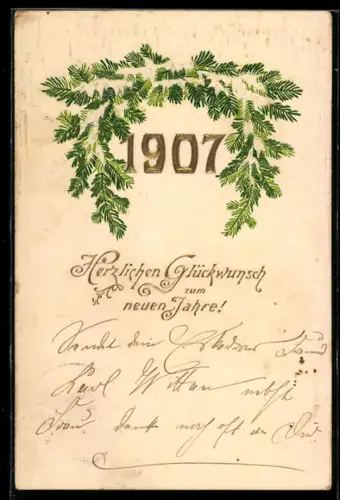 1907
Herzlichen Glückwunsch
zum
neuen Jahre!
Sendet dein
Karl
Frau. denke noch oft an